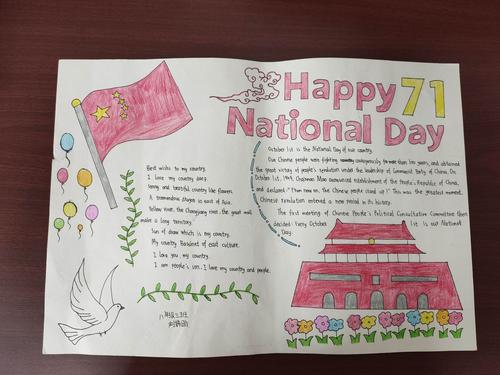 Happy 71
National Day
Best wishes to my country.
I love my country deep.
Sunny and beautiful country like flowers.
A tremendous dragon in east of Asia.
Yellow river, the Changjiang river, the great wall
make a long territory.
Son of draw which is my country.
My country Basdnet of east culture.
I love you my country.
I am people's son. I love my country and people.
八年级二班
October 1st is the National Day of our country.
Our Chinese people were fighting courageously for more than 100 years, and obtained
the great victory of people's revolution under the leadership of Communist Party of China. On
October 1st, 1949, Chairman Mao announced establishment of the People's Republic of China,
and declared: "From now on, the Chinese people stand up!" This was the greatest moment.
Chinese revolution entered a new period in its history.
The first meeting of Chinese People's Political Consultative Committee then
decided: Every October 1st is our National
Day.